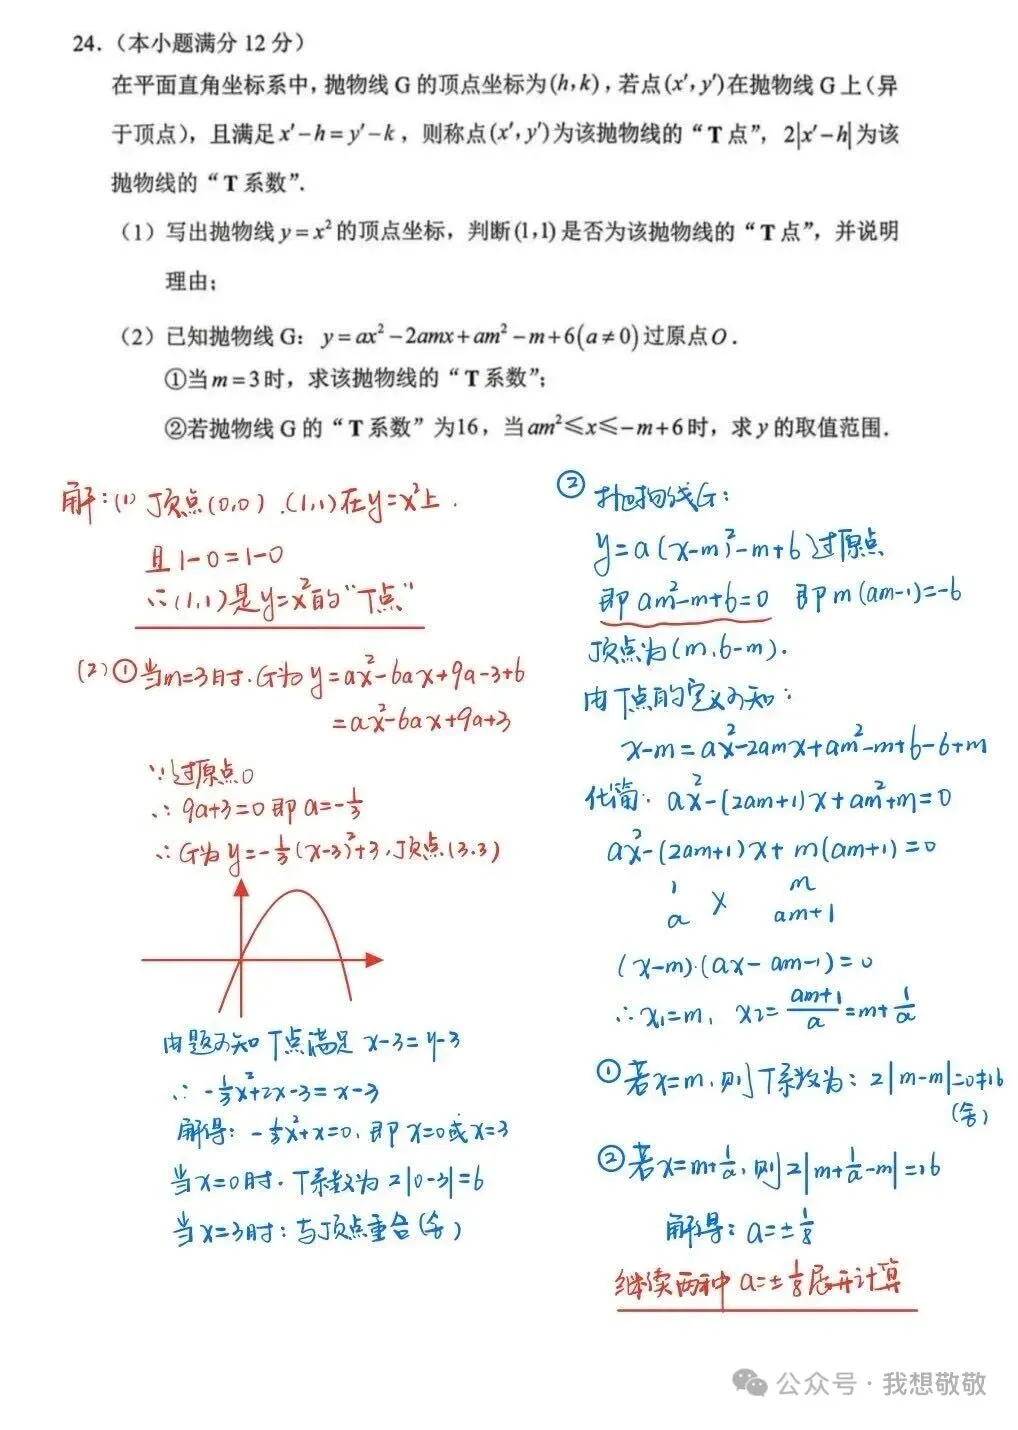 24.（本小题满分 12 分）
在平面直角坐标系中，抛物线 G 的顶点坐标为(h,k)，若点(x′,y′)在抛物线 G 上（异
于顶点），且满足 x′−h=y′−k，则称点(x′,y′)为该抛物线的“T 点”，2|x′−h|为该
抛物线的“T 系数”.
（1）写出抛物线 y=x²的顶点坐标，判断(1,1)是否为该抛物线的“T 点”，并说明
理由；
（2）已知抛物线 G：y=ax²−2amx+am²−m+6(a≠0)过原点 O．
①当 m=3 时，求该抛物线的“T 系数”；
②若抛物线 G 的“T 系数”为16，当 am²≤x≤−m+6 时，求 y 的取值范围．
解：(1) 顶点(0,0)．(1,1)在y=x²上．
且 1−0=1−0
∴(1,1)是y=x²的“T点”
(2)①当m=3时．G为 y=ax²−6ax+9a−3+6
=ax²−6ax+9a+3
∵过原点0
∴ 9a+3=0 即 a=−1/3
∴ G为 y=−1/3(x−3)²+3，顶点(3.3)
由题可知 T点满足 x−3=y−3
∴ −1/3x²+2x−3=x−3
解得：−1/3x²+x=0，即 x=0或x=3
当x=0时．T系数为 2|0−3|=6
当x=3时：与顶点重合(舍)
② 抛物线G：
y=a(x−m)²−m+6过原点
即 am²−m+6=0 即 m(am−1)=−6
顶点为(m,6−m)．
由T点的定义可知：
x−m=ax²−2amx+am²−m+6−6+m
化简：ax²−(2am+1)x+am²+m=0
ax²−(2am+1)x+m(am+1)=0
1 m
a × am+1
(x−m)·(ax−am−1)=0
∴x₁=m，x₂=(am+1)/a=m+1/a
①若x=m，则T系数为：2|m−m|=0≠16
(舍)
②若x=m+1/a，则2|m+1/a−m|=16
解得：a=±1/8
继续两种 a=±1/8展开计算
公众号·我想敬敬